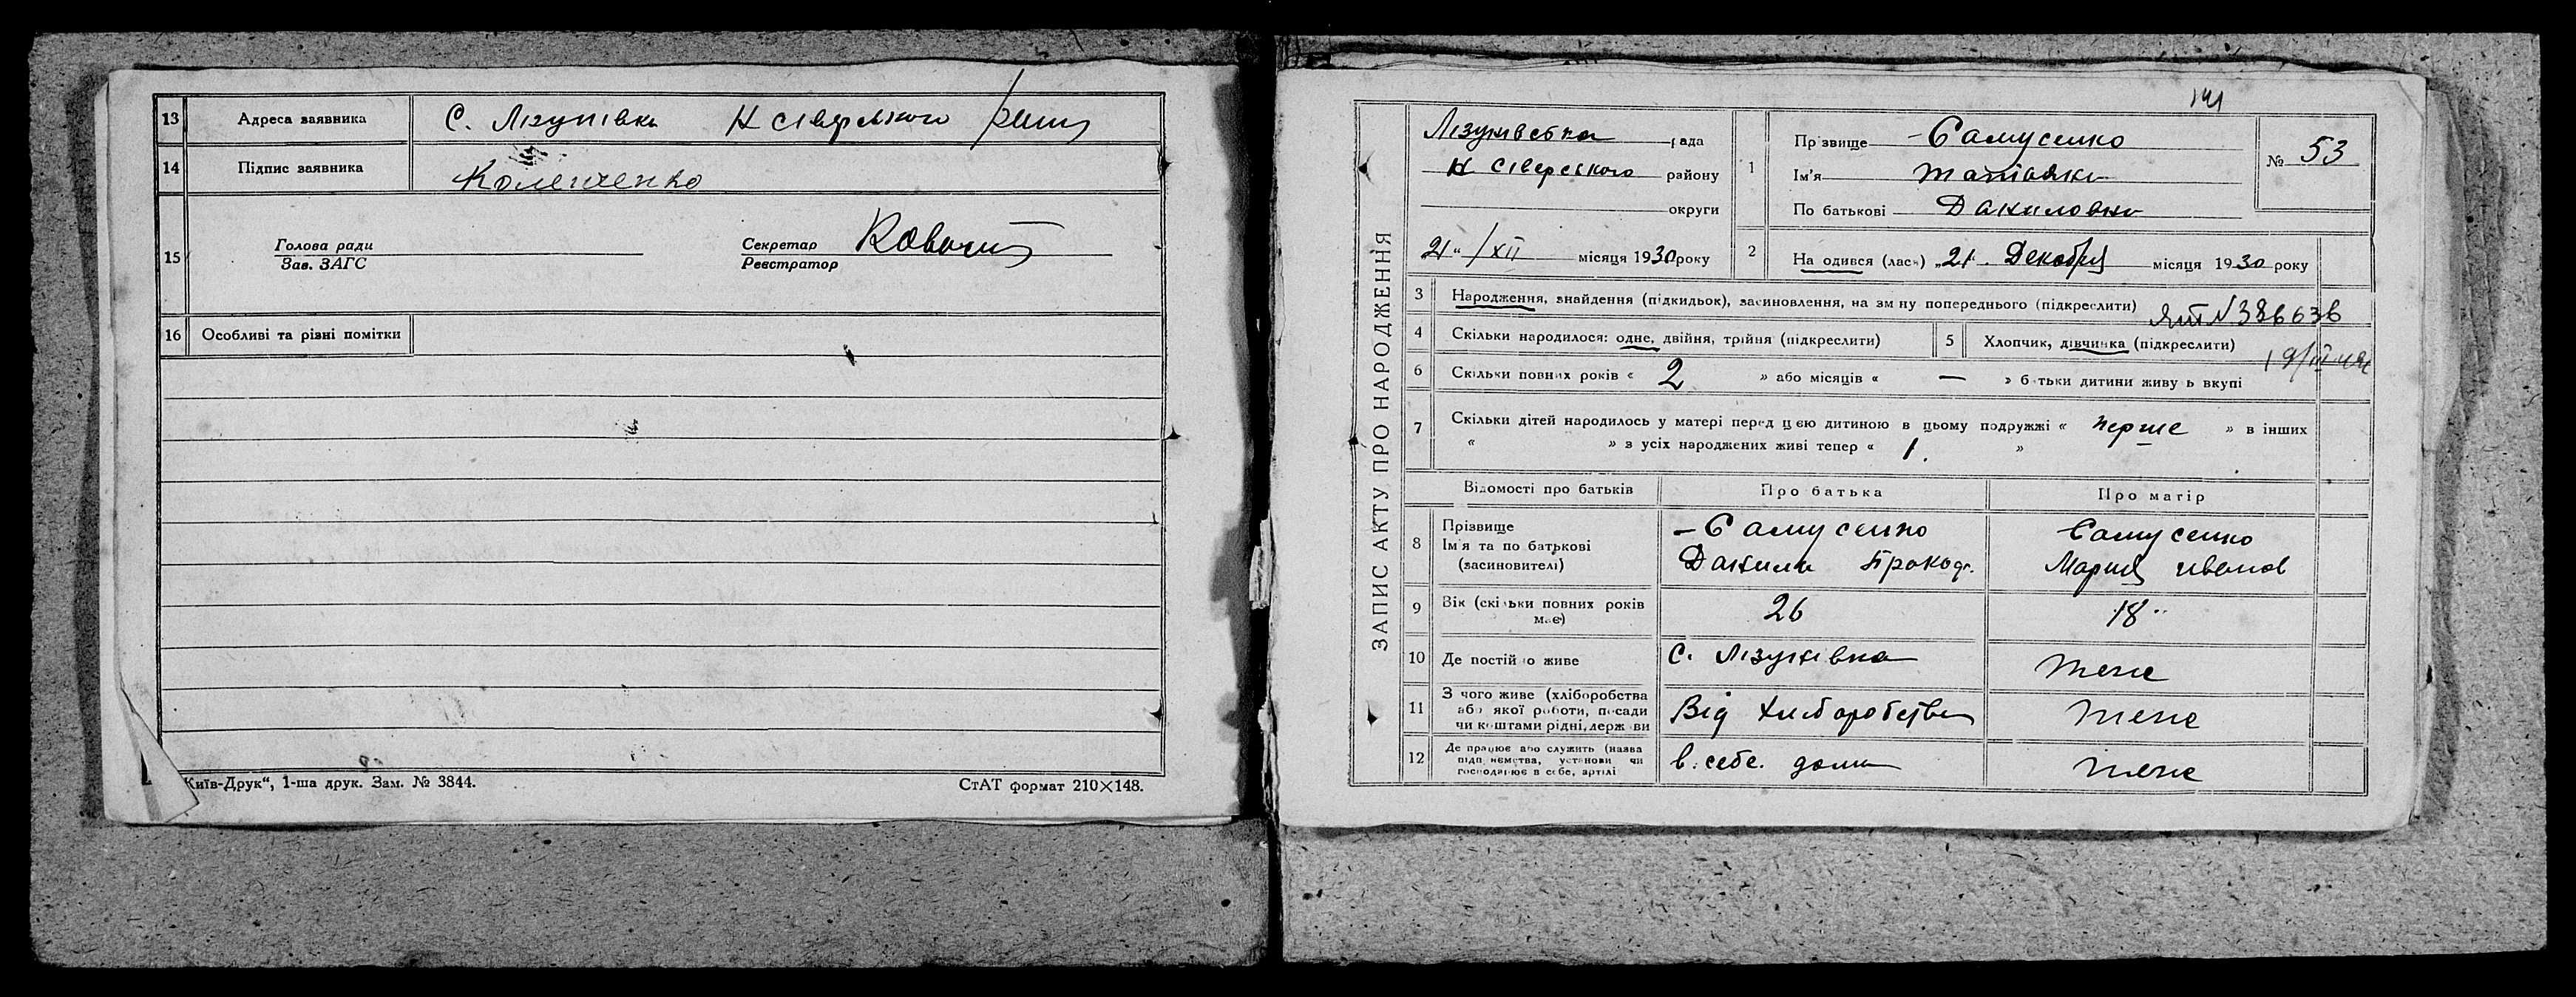 13 Адреса заявника С. Лізунівка Н Сіверського
14 Підпис заявника
15 Голова ради
Зав. ЗАГС
Секретар
Реєстратор
16 Особливі та різні помітки
Київ-Друк“, 1-ша друк. Зам. № 3844. СтАТ формат 210×148.
141
ЗАПИС АКТУ ПРО НАРОДЖЕННЯ
Лізунівська рада
Н Сіверського району
округи
21“/XII місяця 1930 року
1 Прізвище Самусенко
Ім'я Татіяна
По батькові Даниловна
№ 53
2 Народився (лась) „21“ Декабря місяця 1930 року
3 Народження, знайдення (підкидьок), засиновлення, на зміну попереднього (підкреслити)
4 Скільки народилося: одне, двійня, трійня (підкреслити) 5 Хлопчик, дівчинка (підкреслити)
6 Скільки повних років « 2 » або місяців « — » батьки дитини живуть вкупі
7 Скільки дітей народилось у матері перед цією дитиною в цьому подружжі « перше » в інших
« » з усіх народжених живі тепер « 1. »
Відомості про батьків Про батька Про матір
8 Прізвище
Ім'я та по батькові
(засиновителі)
Самусенко
Данило Прокоф.
Самусенко
Мария Иванов
9 Вік (скільки повних років має) 26 18
10 Де постійно живе С. Лізунівка теже
11 З чого живе (хліборобства
або якої роботи, посади
чи коштами рідні, держави
Від Хліборобства теже
12 Де працює або служить (назва
підприємства, установи чи
господарює в себе, артілі
в. себе. дома теже